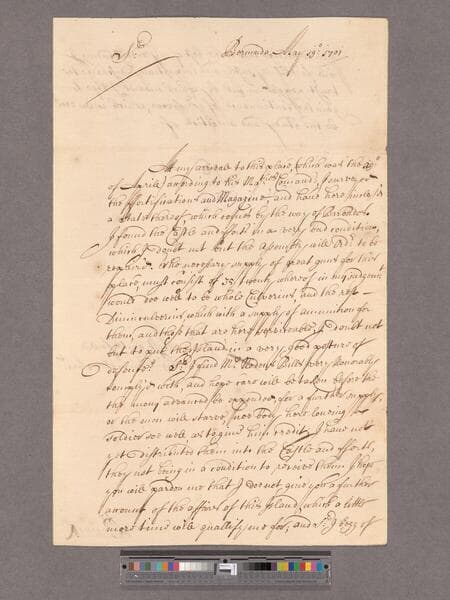 Sr. Bermuda, May 19o. 1701
At my arrivall to this place, which was the
of Aprill, according to his Maties. Comand, I survey'd
the ffortifications and Magazine, and have here inclos'd
a state thereof, which comes by the way of Barbados.
I found the Castle and fforts in a very bad condition,
which I doubt not but the Assembly will Ordr. to be
repair'd. The necessary supply of great guns for this
place, must consist of 25: twenty whereof in my judgmt.
would doe well to be whole Culverins, and the rest
Diminculverins, which with a supply of amunition for
them, and those that are here serviceable, I doubt not
but to put the Island in a very good posture of
defence. Sr. I find Mr. Bills very honorably
comply'd with, and hope care will be taken before the
the mony advanced be expended, for a further supply,
or the men will starve, noe body here loveing a
Soldier soe well as to give him credit, I have not
yet distributed them into the Castle and fforts,
they not being in a condition to receive them. I hope
you will pardon me that I doe not give you a further
account of the affairs of this Island, which a little
more time will quallify me for, and Sr. I begg of